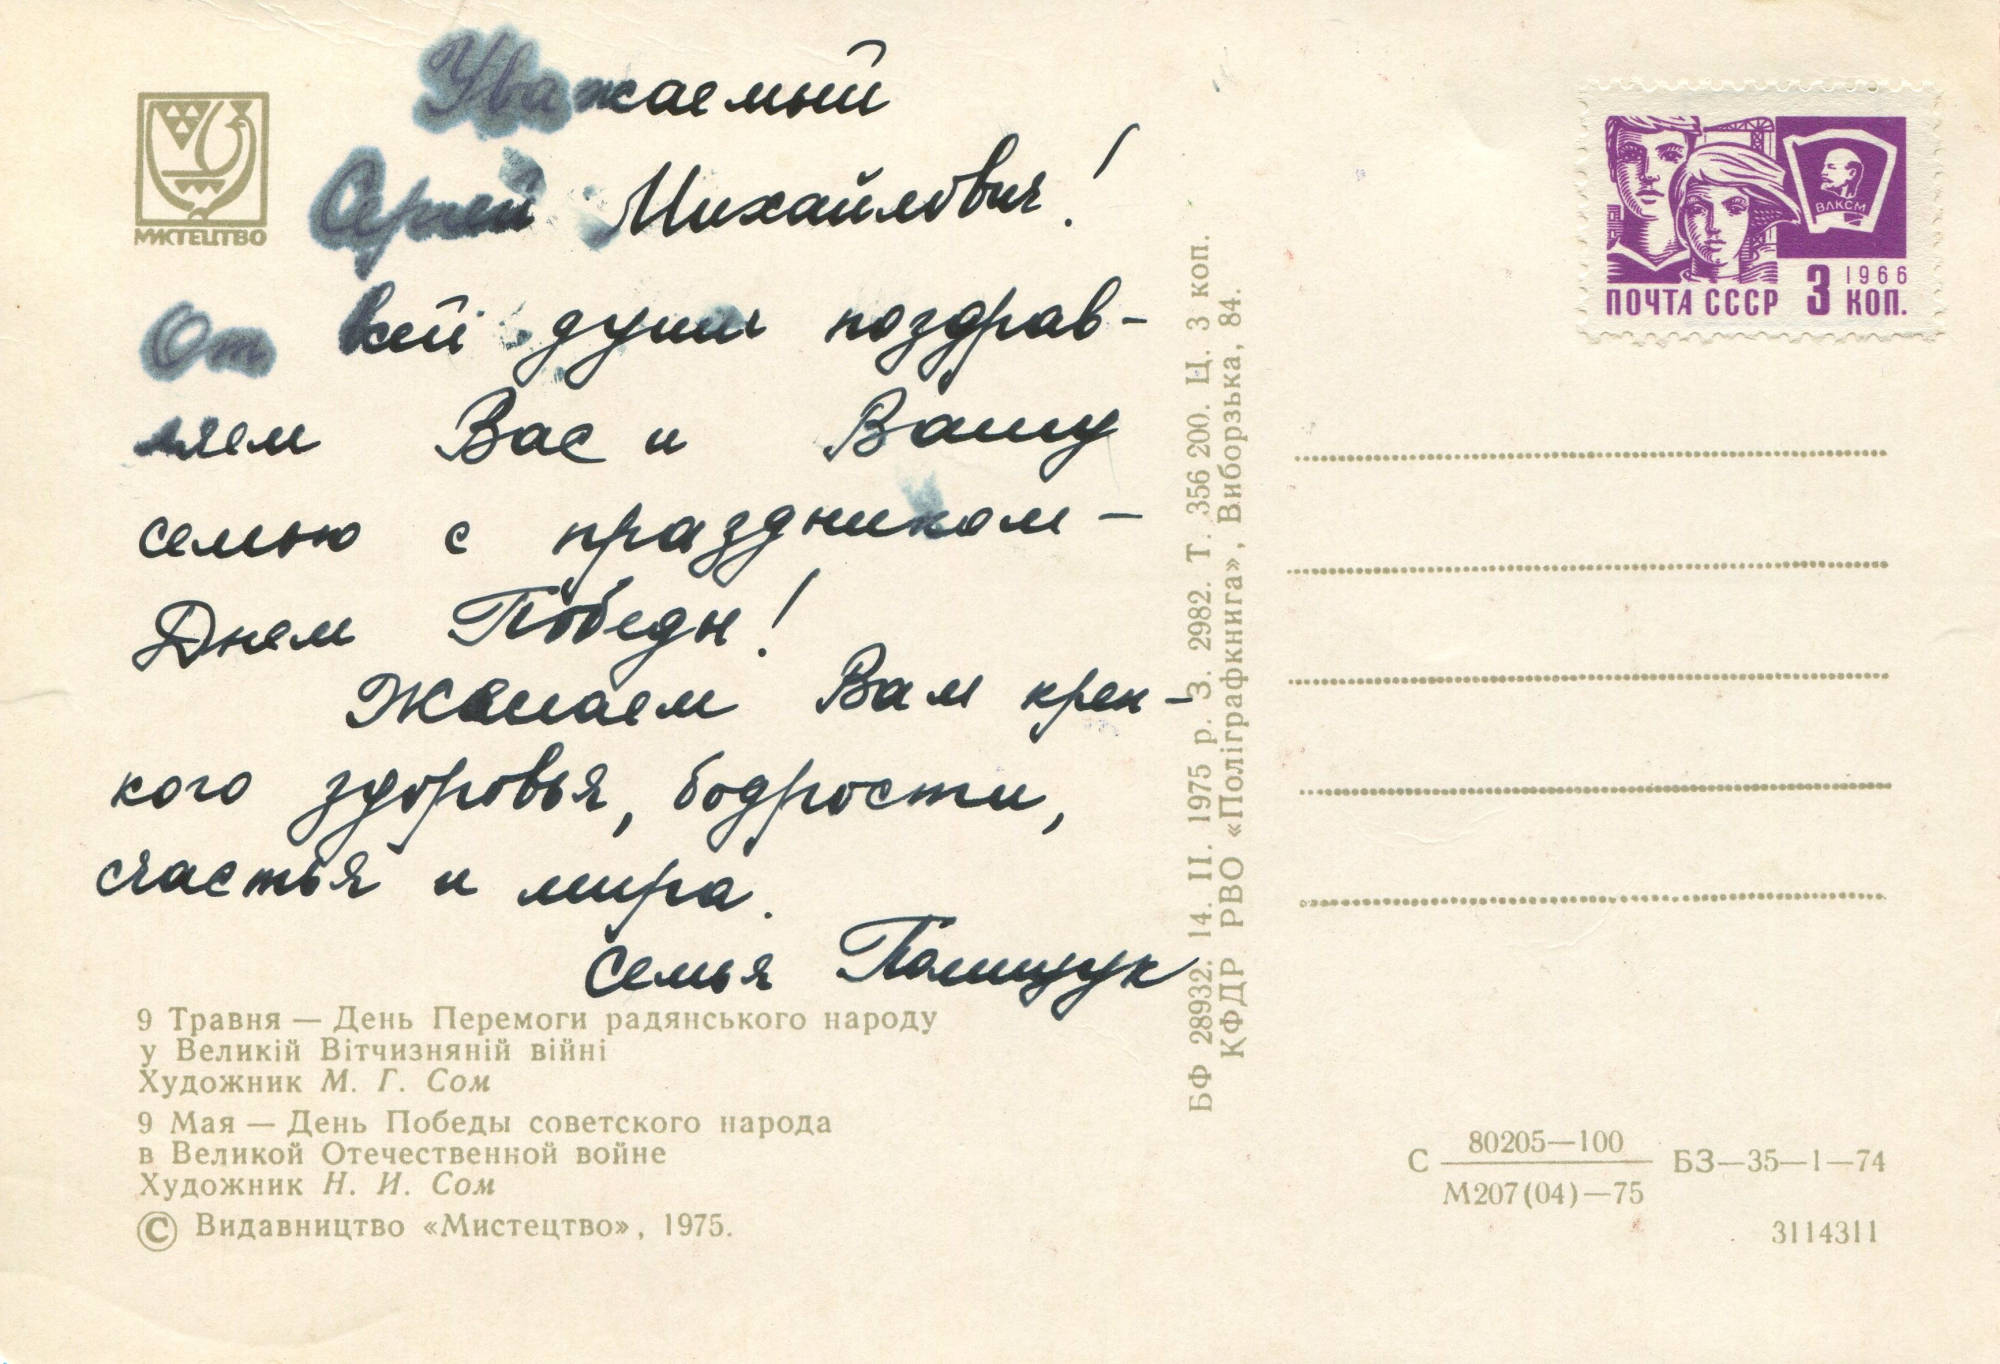 МИСТЕЦТВО
Уважаемый
Сергей Михайлович!
От всей души поздрав-
ляем Вас и Вашу
семью с праздником –
Днем Победы!
Желаем Вам креп-
кого здоровья, бодрости,
счастья и мира.
Семья Полищук
9 Травня — День Перемоги радянського народу
у Великій Вітчизняній війні
Художник М. Г. Сом
9 Мая — День Победы советского народа
в Великой Отечественной войне
Художник Н. И. Сом
© Видавництво «Мистецтво», 1975.
БФ 28932. 14. II. 1975 р. З. 2982. Т. 356 200. Ц. 3 коп.
КФДР РВО «Поліграфкнига», Виборзька, 84.
ВЛКСМ
1966
ПОЧТА СССР 3 КОП.
С 80205—100 БЗ—35—1—74
М207(04)—75
3114311